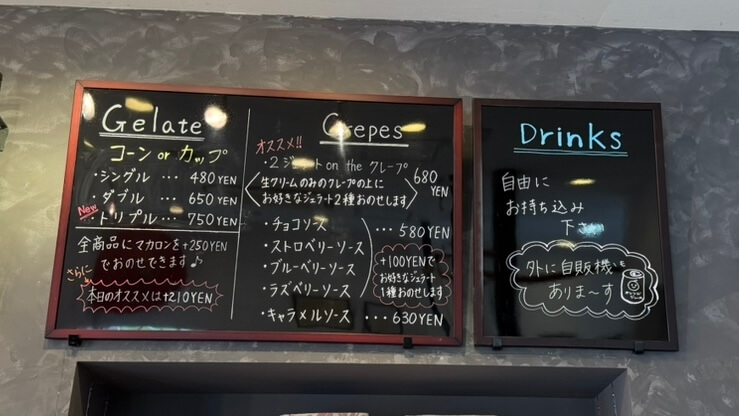 Gelate
コーン or カップ
・シングル … 480YEN
・ダブル … 650YEN
New
・トリプル … 750YEN
全商品にマカロンを+250YEN
でおのせできます♪
さらに
本日のオススメは+210YEN
Crepes
オススメ!!
・2ジェラート on the クレープ
生クリームのみのクレープの上に
お好きなジェラート2種おのせします
680
YEN
・チョコソース
・ストロベリーソース
・ブルーベリーソース
・ラズベリーソース
… 580YEN
+100YENで
お好きなジェラート
1種おのせします
・キャラメルソース … 630YEN
Drinks
自由に
お持ち込み
下さい
外に自販機も
ありま〜す